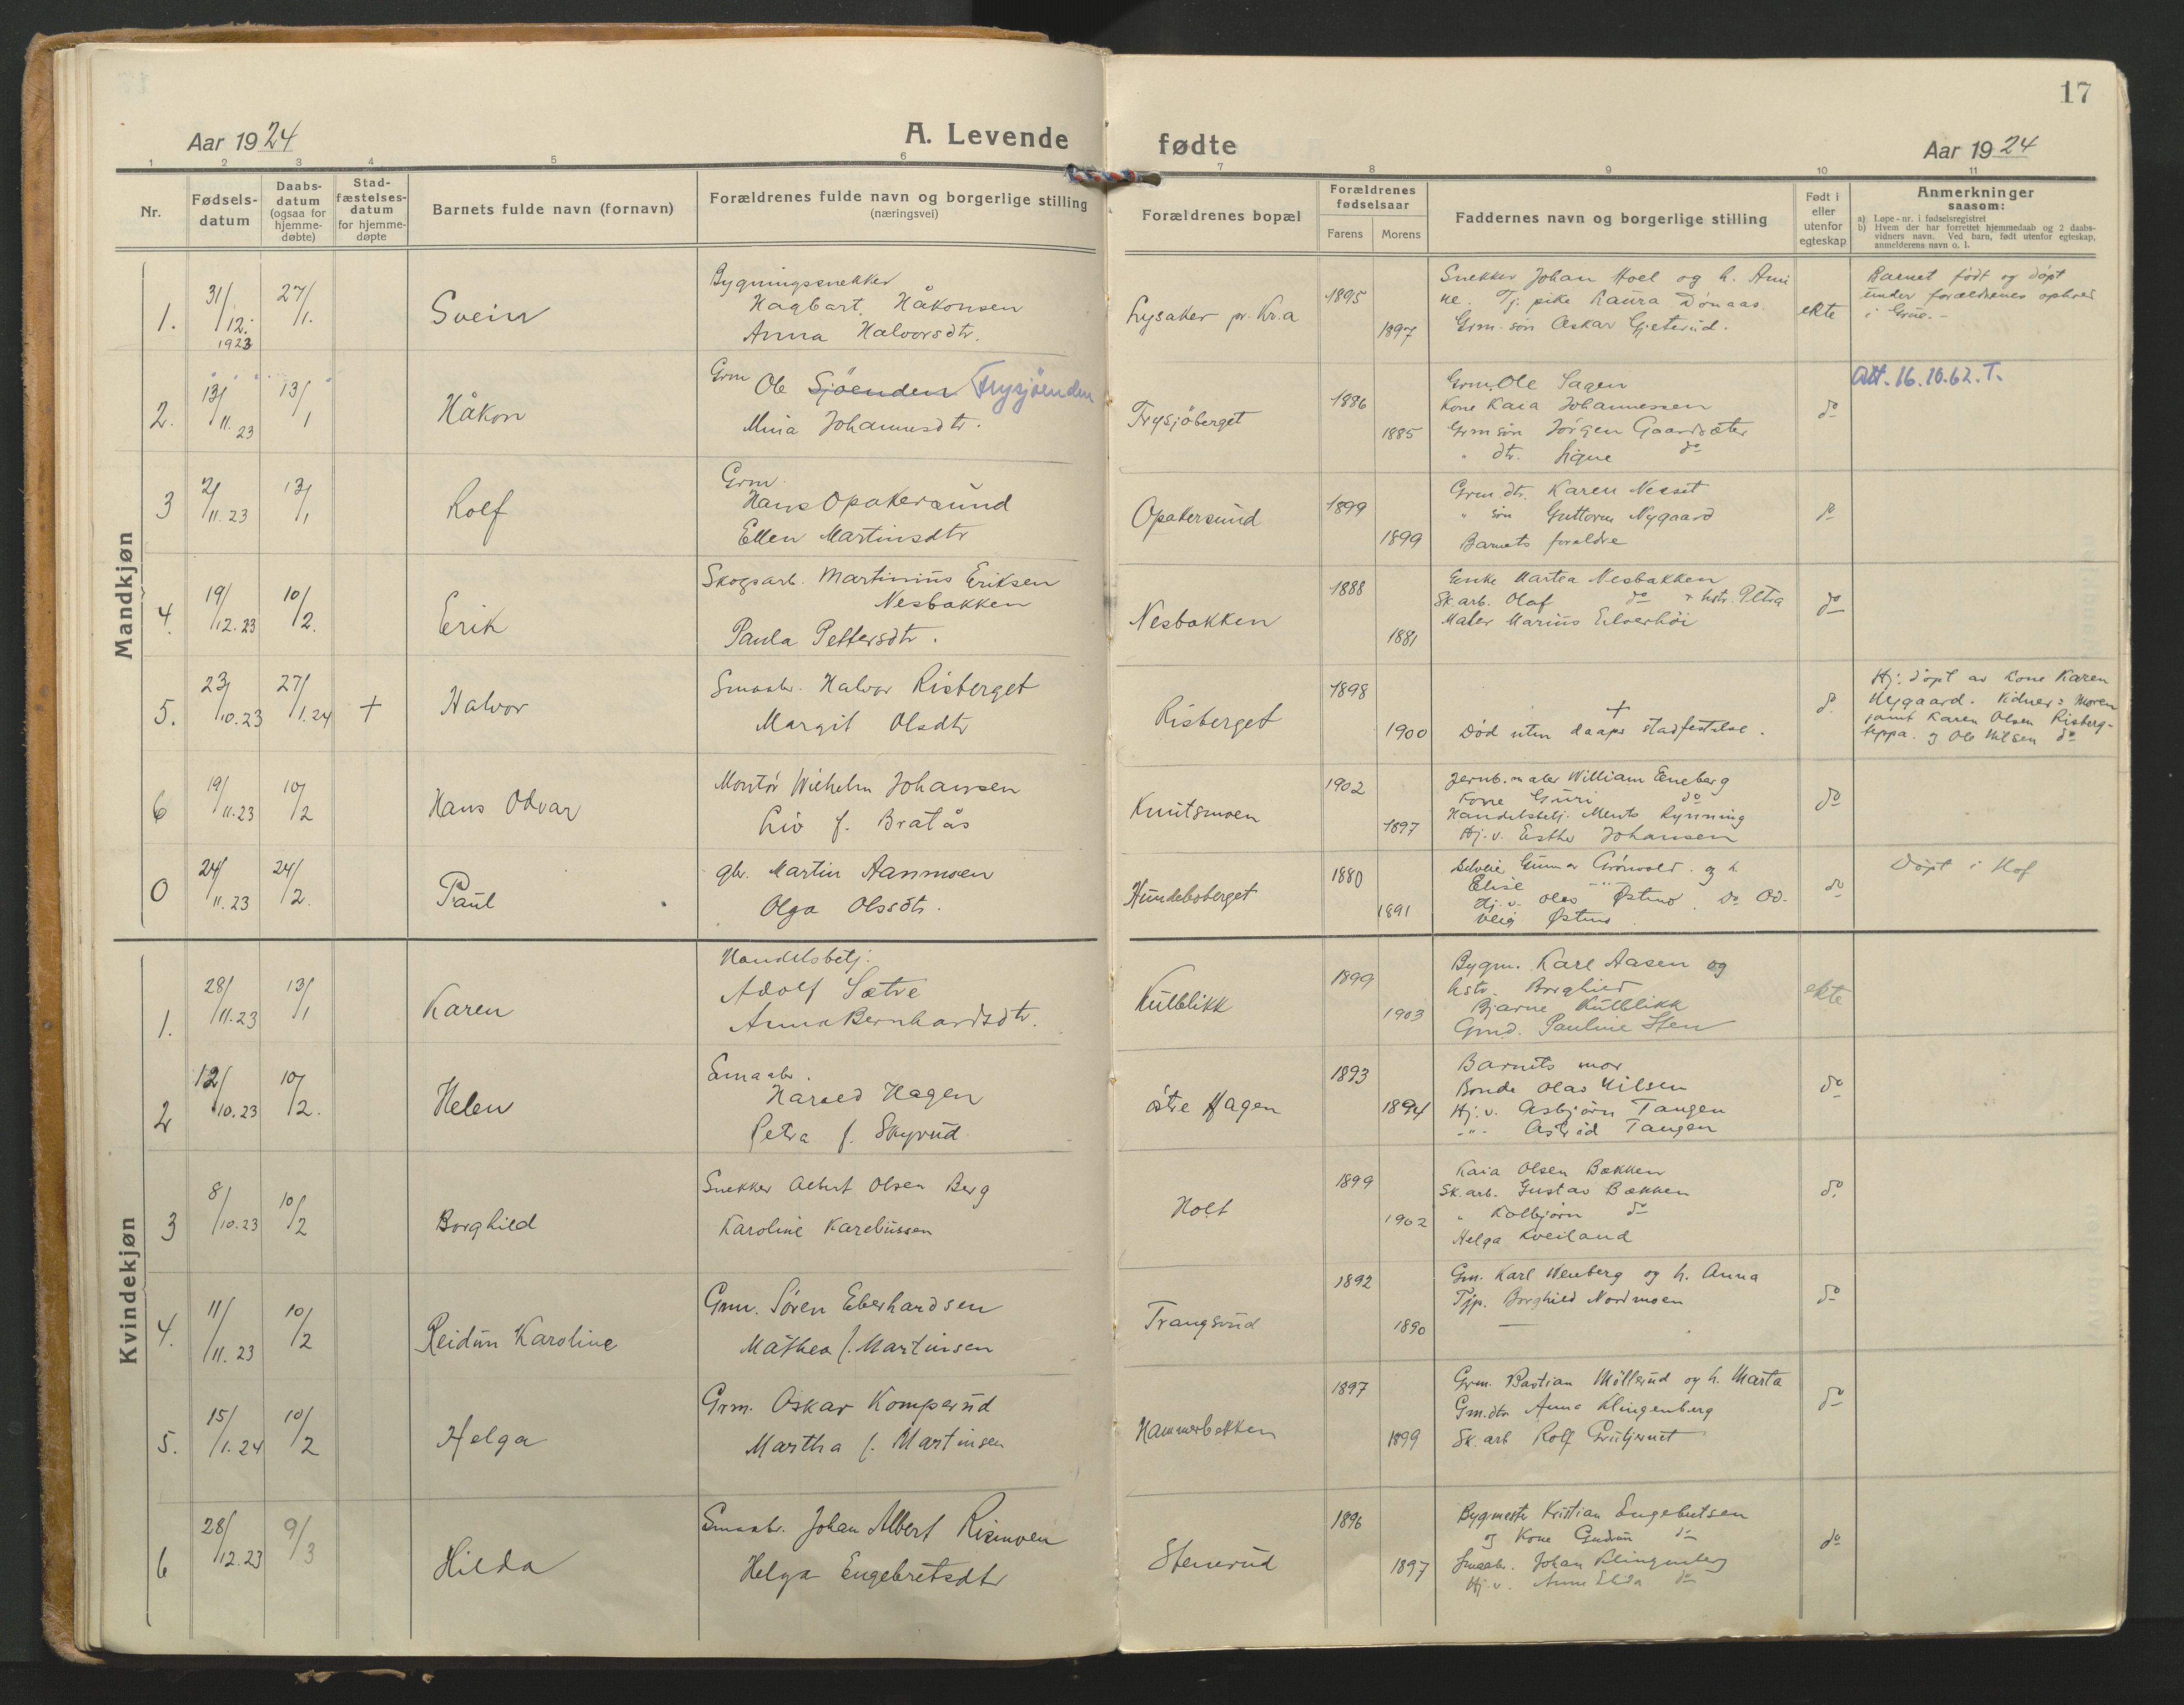 17
Aar 1924
A. Levende
fødte
Aar 1924
1 2 3 4 5 6 7 8 9 10 11
Nr.
Fødsels-
datum
Daabs-
datum
(ogsaa for
hjemme-
døbte)
Stad-
fæstelses-
datum
for hjemme-
døpte
Barnets fulde navn (fornavn)
Forældrenes fulde navn og borgerlige stilling
(næringsvei)
Forældrenes bopæl
Forældrenes
fødselsaar
Farens
Morens
Faddernes navn og borgerlige stilling
Født i
eller
utenfor
egteskap
Anmerkninger
saasom:
a) Løpe-nr. i fødselsregistret
b) Hvem der har forrettet hjemmedaab og 2 daabs-
vidners navn. Ved barn, født utenfor egteskap,
anmelderens navn o. l.
Mandkjøn
1.
31/12. 1923
27/1.
Svein
Bygningssnekker
Hagbart Håkonsen
Anna Halvorsdtr.
Lysaker pr. Kr.a
1895
1897
Snekker Johan Hoel og h. Ami
ne. Tj. pike Laura Dønaas
Grm. søn Oskar Gjeterud.
ekte
Barnet født og døpt
under forældrenes ophold
i Grue.-
2.
13/11. 23
13/1
Håkon
Grm Ole Sjöenden Frysjöenden
Mina Johannesdtr.
Frysjöberget
1886
1885
Grm. Ole Sagen
Kone Kaia Johannessen
Grm søn Jørgen Gaardsæter
" dtr. Signe do
do
Att. 16.10.62. T.
3
2/11. 23
13/1
Rolf
Grm.
Hans Opakersund
Ellen Martinsdtr
Opakersund
1899
1899
Grm. dtr. Karen Nesset
" søn Guttorm Nygaard
Barnets foreldre
do
4.
19/12. 23
10/2.
Erik
Skogsarb. Martinius Eriksen
Nesbakken
Paula Pettersdtr.
Nesbakken
1888
1881
Enke Martea Nesbakken
Sk. arb. Olaf do + hstr. Petra
Maler Marius Elverhöi
do
5.
23/10.23
27/1.24
+
Halvor
Smaabr. Halvor Risberget
Margit Olsdtr
Risberget
1898
1900
+
Død uten daaps stadfestelse.
do
Hj. døpt av Kone Karen
Nygaard. Vidner: Moren
samt Karen Olsen Risberg-
teppa. og Ole Nilsen do
6
19/11.23
10/2
Hans Odvar
Montør Wilhelm Johansen
Liv f. Bratås
Knutsmoen
1902
1897
Jernb. maler William Eneberg
Kone Guri do
Handelsbetj. Ments Rynning
Hj. v. Esther Johansen
do
0
24/11. 23
24/2.
Paul
gbr. Martin Aanmoen
Olga Olssdtr.
Hundeboberget
1880
1891
Gunnar Grönvold. og h.
Elise -"-
Hj. v. Olav Østmo. do Od-
veig Østmo
do
Døpt i Hof
Kvindekjøn
1.
28/11.23
13/1
Karen
Handelsbetj.
Adolf Sætre
Anna Bernhardsdtr.
Kulblikk
1899
1903
Bygm. Karl Aasen og
hstr. Borghild
Bjarne Kulblikk
Grmd. Pauline Sten
ekte
2
12/10.23
10/2.
Helen
Smaabr.
Harald Hagen
Petra f. Skyrud
østre Hagen
1893
1894
Barnets mor
Bonde Olav Nilsen
Hj. v. Asbjørn Tangen
-"- Astrid Tangen
do
3
8/10.23
10/2
Borghild
Snekker Albert Olsen Berg
Karoline Karelinssen
Holt
1899
1902
Kaia Olsen Bækken
Sk. arb. Gustav Bækken
" Kolbjørn do
Helga Kveiland
do
4.
11/11. 23
10/2
Reidun Karoline
Grm. Søren Eberhardsen
Mathea f. Martinsen
Trangsrud
1892
1890
Gm. Karl Wenberg og h. Anna
Tjp. Borghild Nordmoen
—
do
5.
15/1. 24
10/2
Helga
Grm. Oskar Komperud
Martha f. Martinsen
Hammerbekken
1897
1899
Grm. Bastian Möllerud og h. Marta
Gm.dtr Anna Klingenberg
Sk. arb Rolf
do
6
28/12.23
9/3
Hilda
Smaabr. Johan Albert Rismoen
Helga Engebretsdtr
Stenerud
1896
1897
Bygmestr Kristian Engebretsen
og Kone Gudrun do
Smaabr. Johan Klingenberg
Hj. v. Anna Elida do
do